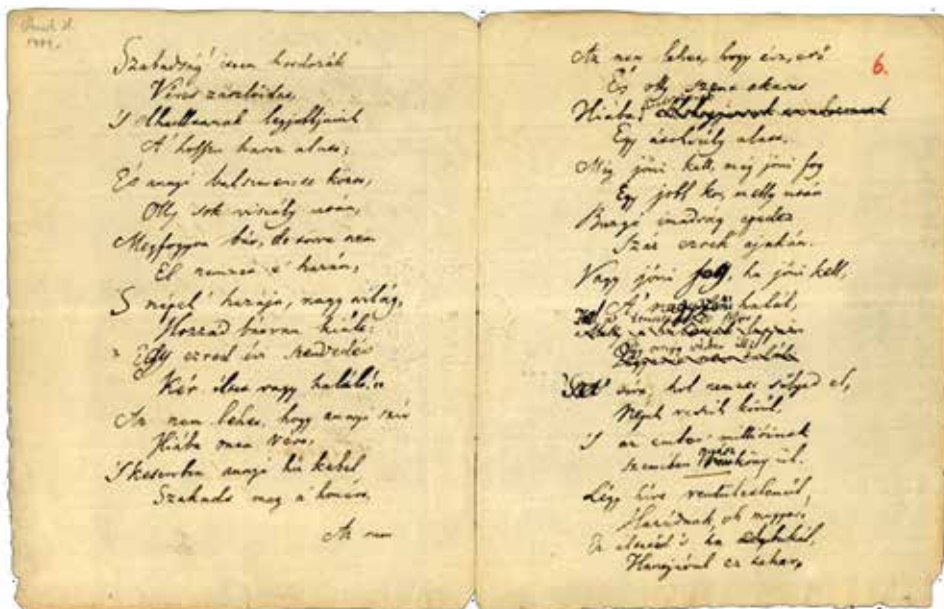 Szabadság! itten hordozák
Véres zászlóidat,
S elhulltanak legjobbjaink
A hosszu harcz alatt;
És annyi balszerencse közt,
Olly sok viszály után,
Megfogyva bár, de törve nem
Él nemzet e' hazán,
S népek' hazája, nagy világ,
Hozzád bátran kiált:
"Egy ezred évi szenvedés
Kér éltet vagy halált!"
Az nem lehet, hogy annyi szív
Hiába onta vért,
S keservben annyi hű kebel
Szakadt meg a' honért.
Az nem
6.
Az nem lehet, hogy ész, erő
És olly szent akarat
Hiába
Egy átoksúly alatt.
Még jőni kell, még jőni fog
Egy jobb kor, melly után
Buzgó imádság epedez
Száz ezrek ajakán.
Vagy jőni fog, ha jőni kell,
A' nagyszerü halál,
'S a' sirt, hol nemzet sülyed el,
Népek veszik körül,
S az ember millióinak
Szemében gyász köny ül.
Légy híve rendületlenűl
Hazádnak, oh magyar;
Ez éltetőd 's ha elbukál,
Hantjával ez takar,